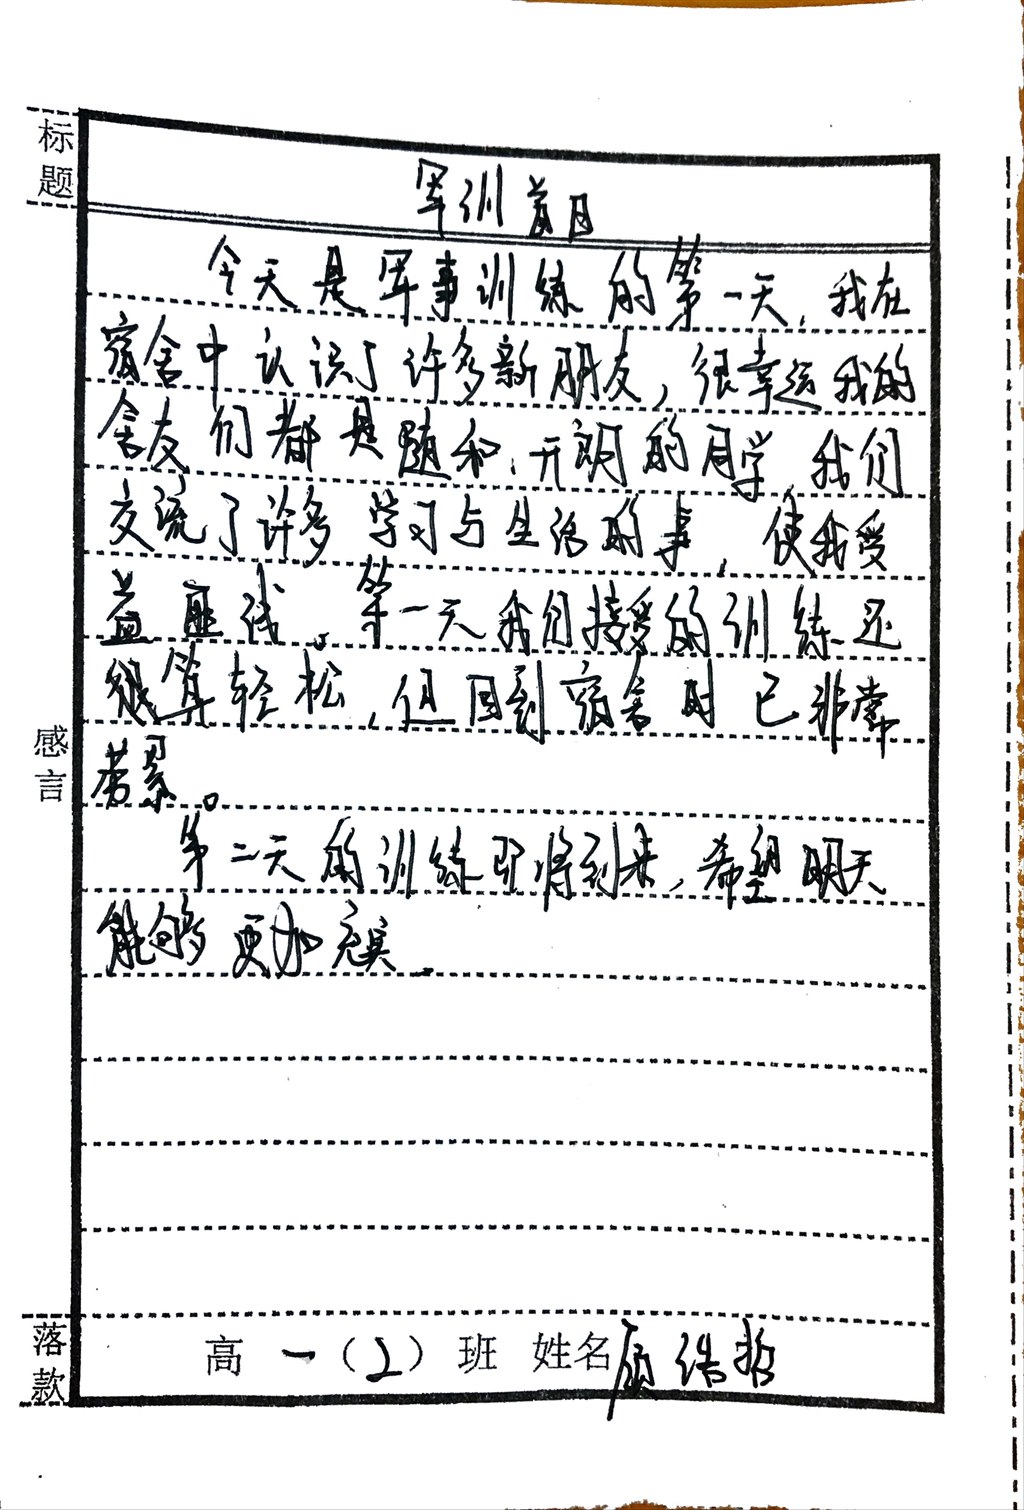 标题
军训首日
今天是军事训练的第一天，我在
宿舍中认识了许多新朋友，很幸运我的
舍友们都是随和、开朗的同学，我们
交流了许多学习与生活的事，使我受
益匪浅。第一天我们接受的训练还
很算轻松，但回到宿舍时已非常
劳累。
第二天的训练即将到来，希望明天
能够更加充实.
感言
落款 高一（2）班 姓名 浩哲